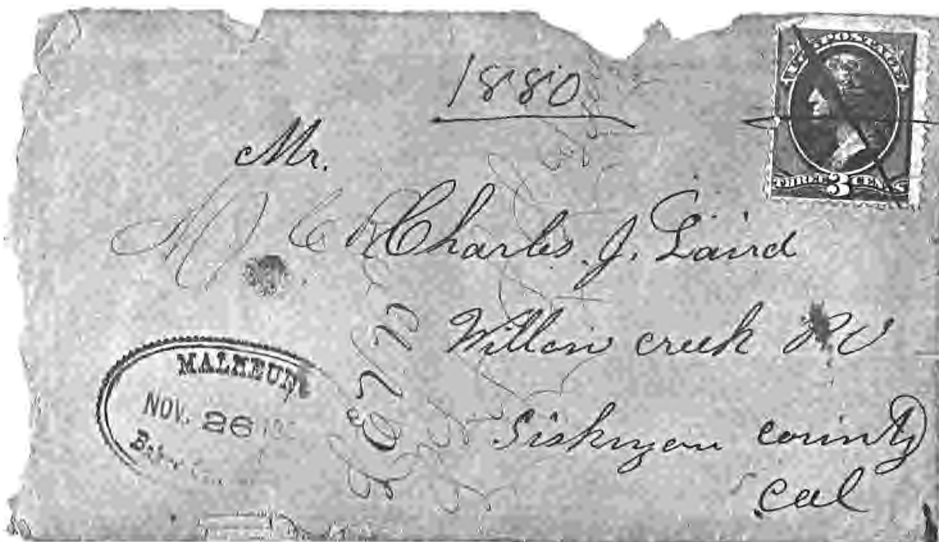 1880
U.S. POSTAGE
THREE 3 CENTS
Mr.
Charles. J. Laird
Willow creek
Siskiyou county
Cal
MALHEUR
NOV. 26
Baker